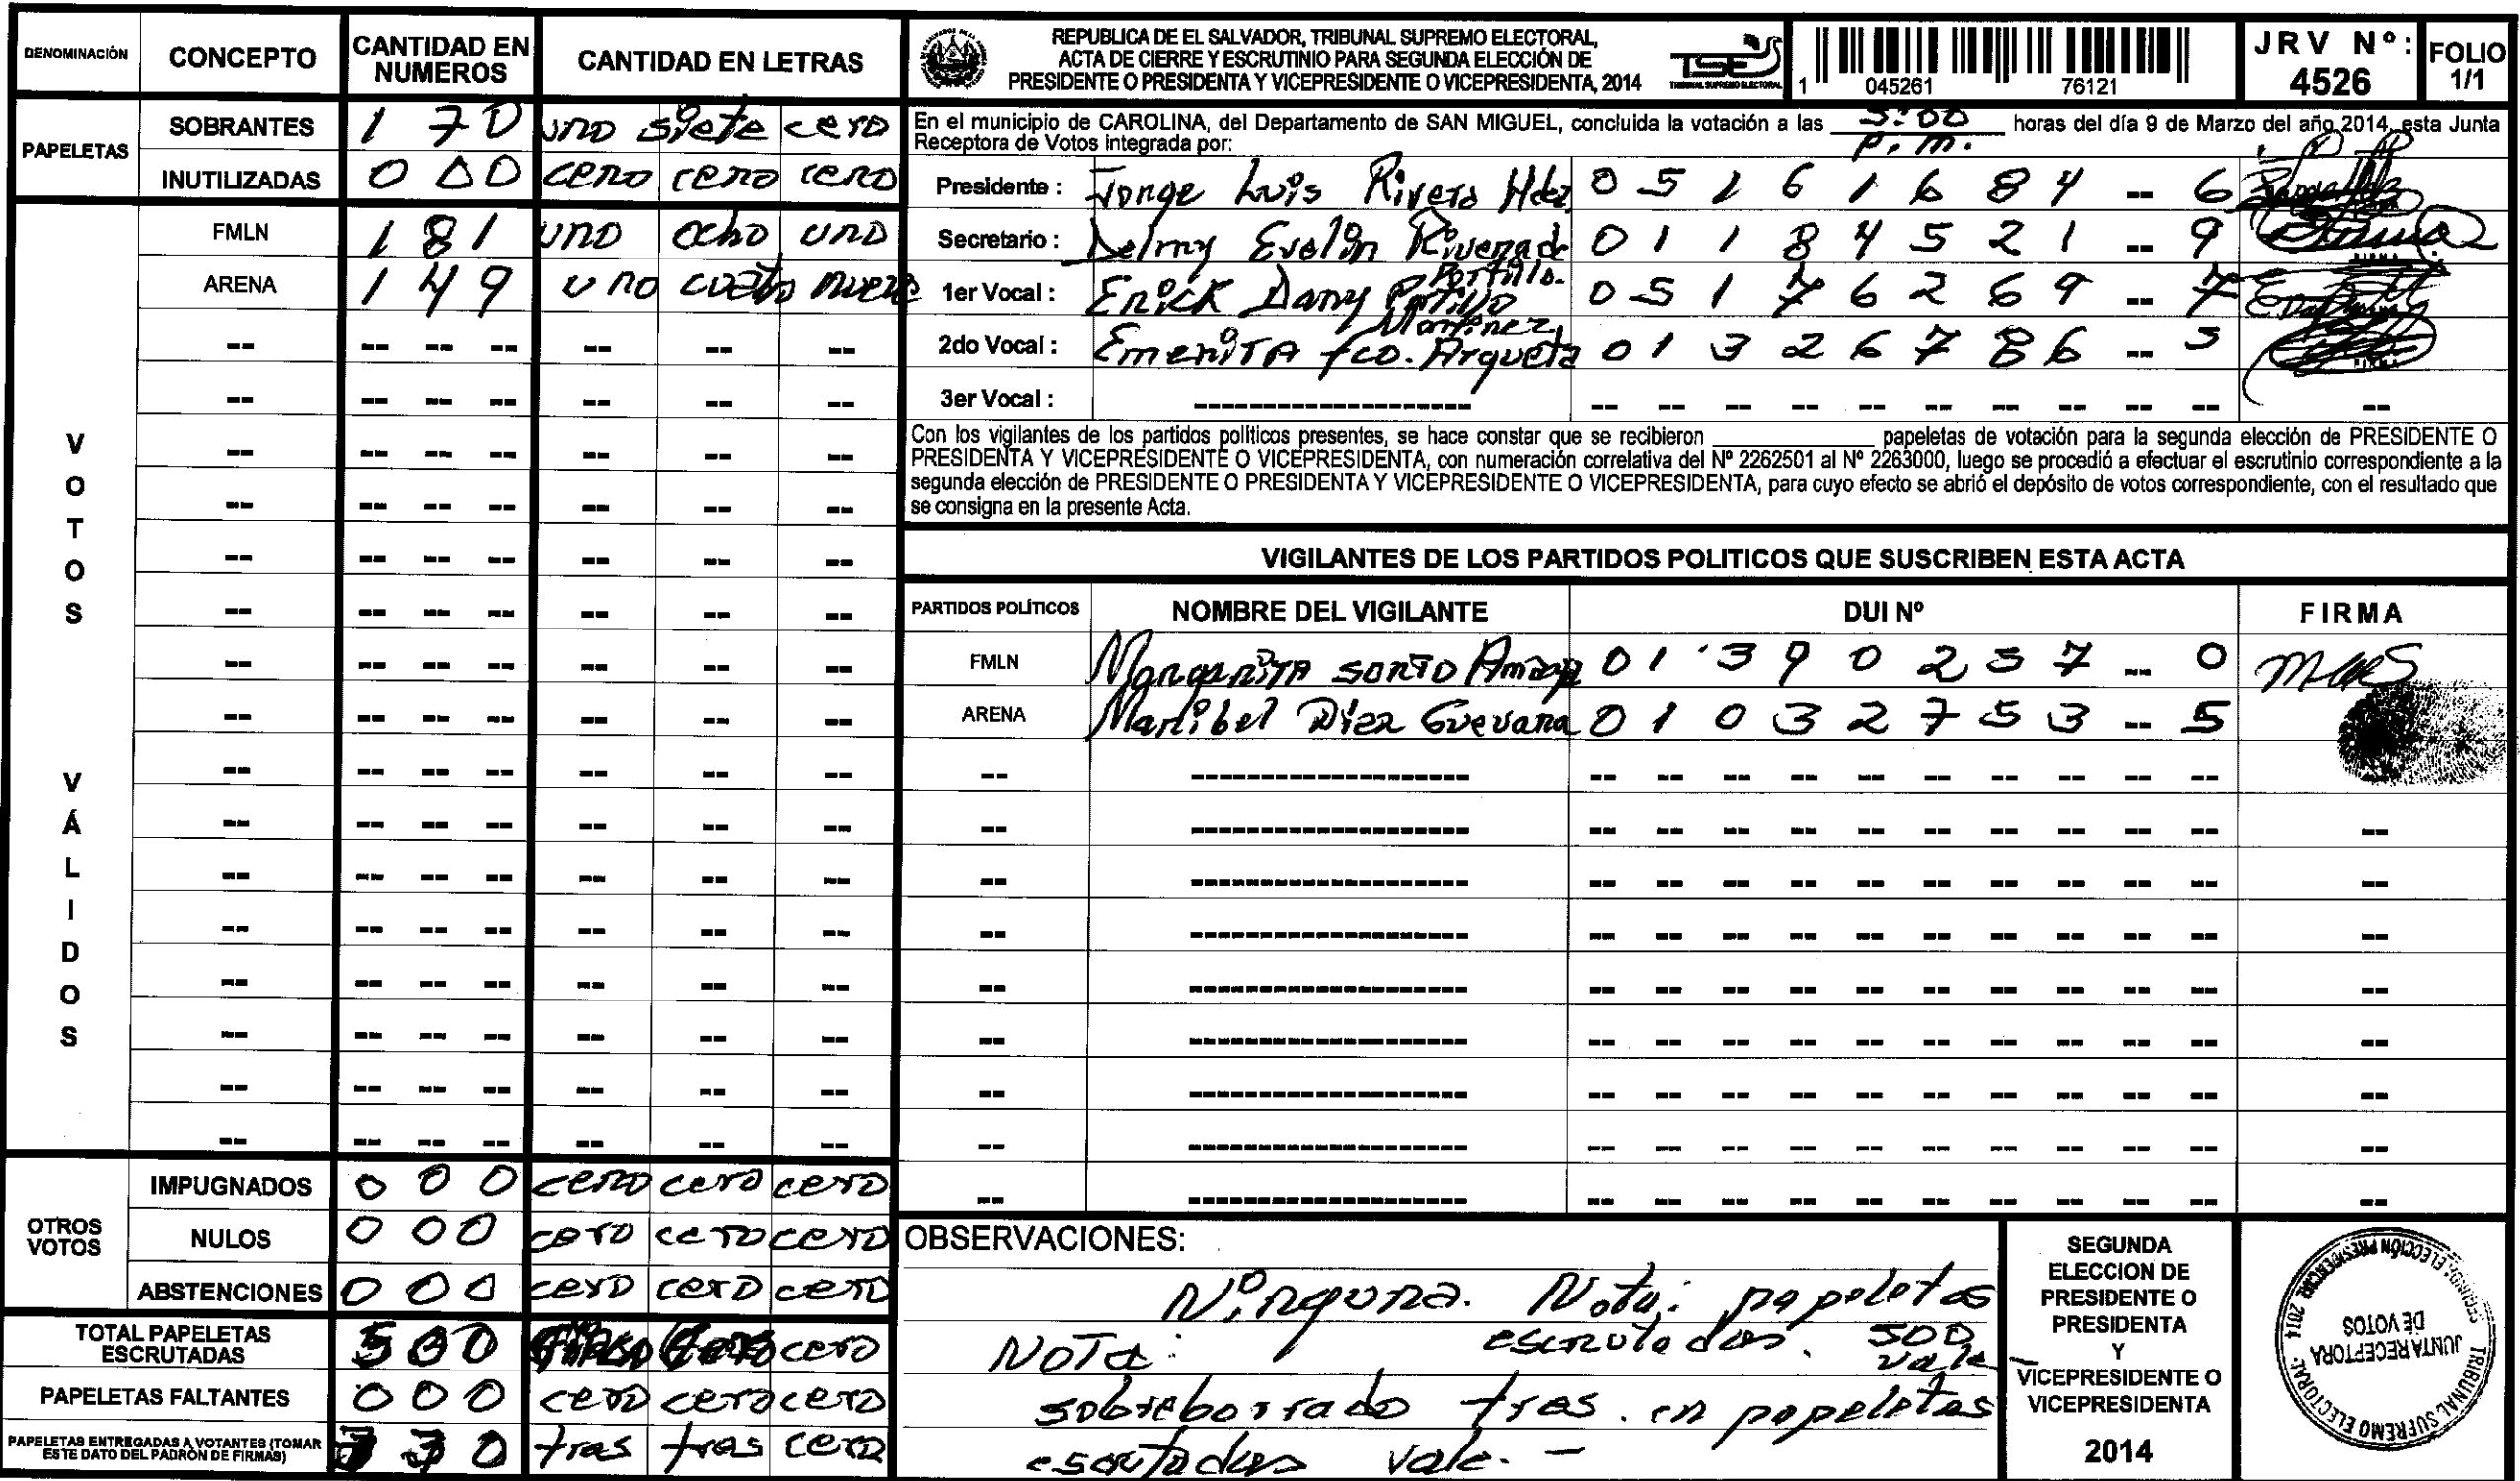 DENOMINACIÓN CONCEPTO CANTIDAD EN NUMEROS CANTIDAD EN LETRAS
PAPELETAS
SOBRANTES 1 7 0 uno siete cero
INUTILIZADAS 0 0 0 cero cero cero
VOTOS VÁLIDOS
FMLN 1 8 1 uno ocho uno
ARENA 1 4 9 uno cuatro nueve
OTROS VOTOS
IMPUGNADOS 0 0 0 cero cero cero
NULOS 0 0 0 cero cero cero
ABSTENCIONES 0 0 0 cero cero cero
TOTAL PAPELETAS ESCRUTADAS 5 0 0 cero
PAPELETAS FALTANTES 0 0 0 cero cero cero
PAPELETAS ENTREGADAS A VOTANTES (TOMAR ESTE DATO DEL PADRÓN DE FIRMAS) 3 3 0 tras tras cero
REPUBLICA DE EL SALVADOR, TRIBUNAL SUPREMO ELECTORAL,
ACTA DE CIERRE Y ESCRUTINIO PARA SEGUNDA ELECCIÓN DE
PRESIDENTE O PRESIDENTA Y VICEPRESIDENTE O VICEPRESIDENTA, 2014
TSE
TRIBUNAL SUPREMO ELECTORAL
1 045261 76121
JRV Nº: 4526
FOLIO 1/1
En el municipio de CAROLINA, del Departamento de SAN MIGUEL, concluida la votación a las 5:00 p.m. horas del día 9 de Marzo del año 2014, esta Junta
Receptora de Votos integrada por:
Presidente : Jorge Luis Rivera Hdez 0 5 1 6 1 6 8 4 -- 6
Secretario : Delmy Evelin Rivera de Portillo. 0 1 1 8 4 5 2 1 -- 9
1er Vocal : Erick Dany Portillo Martinez 0 5 1 7 6 2 6 9 -- 7
2do Vocal : Emerita fco. Argueta 0 1 3 2 6 7 8 6 -- 5
3er Vocal :
Con los vigilantes de los partidos políticos presentes, se hace constar que se recibieron papeletas de votación para la segunda elección de PRESIDENTE O
PRESIDENTA Y VICEPRESIDENTE O VICEPRESIDENTA, con numeración correlativa del Nº 2262501 al Nº 2263000, luego se procedió a efectuar el escrutinio correspondiente a la
segunda elección de PRESIDENTE O PRESIDENTA Y VICEPRESIDENTE O VICEPRESIDENTA, para cuyo efecto se abrió el depósito de votos correspondiente, con el resultado que
se consigna en la presente Acta.
VIGILANTES DE LOS PARTIDOS POLITICOS QUE SUSCRIBEN ESTA ACTA
PARTIDOS POLÍTICOS NOMBRE DEL VIGILANTE DUI Nº FIRMA
FMLN Margarita Sorto Amaya 0 1 3 9 0 2 5 7 -- 0
ARENA Maribel Diaz Guevara 0 1 0 3 2 7 5 3 -- 5
OBSERVACIONES:
Ninguna. Nota: papeletas
escrutadas. 500 vale
NOTA:
sobreborrado tras. en papeletas
escrutadas vale. -
SEGUNDA
ELECCION DE
PRESIDENTE O
PRESIDENTA
Y
VICEPRESIDENTE O
VICEPRESIDENTA
2014
JUNTA RECEPTORA
DE VOTOS
TRIBUNAL SUPREMO ELECTORAL